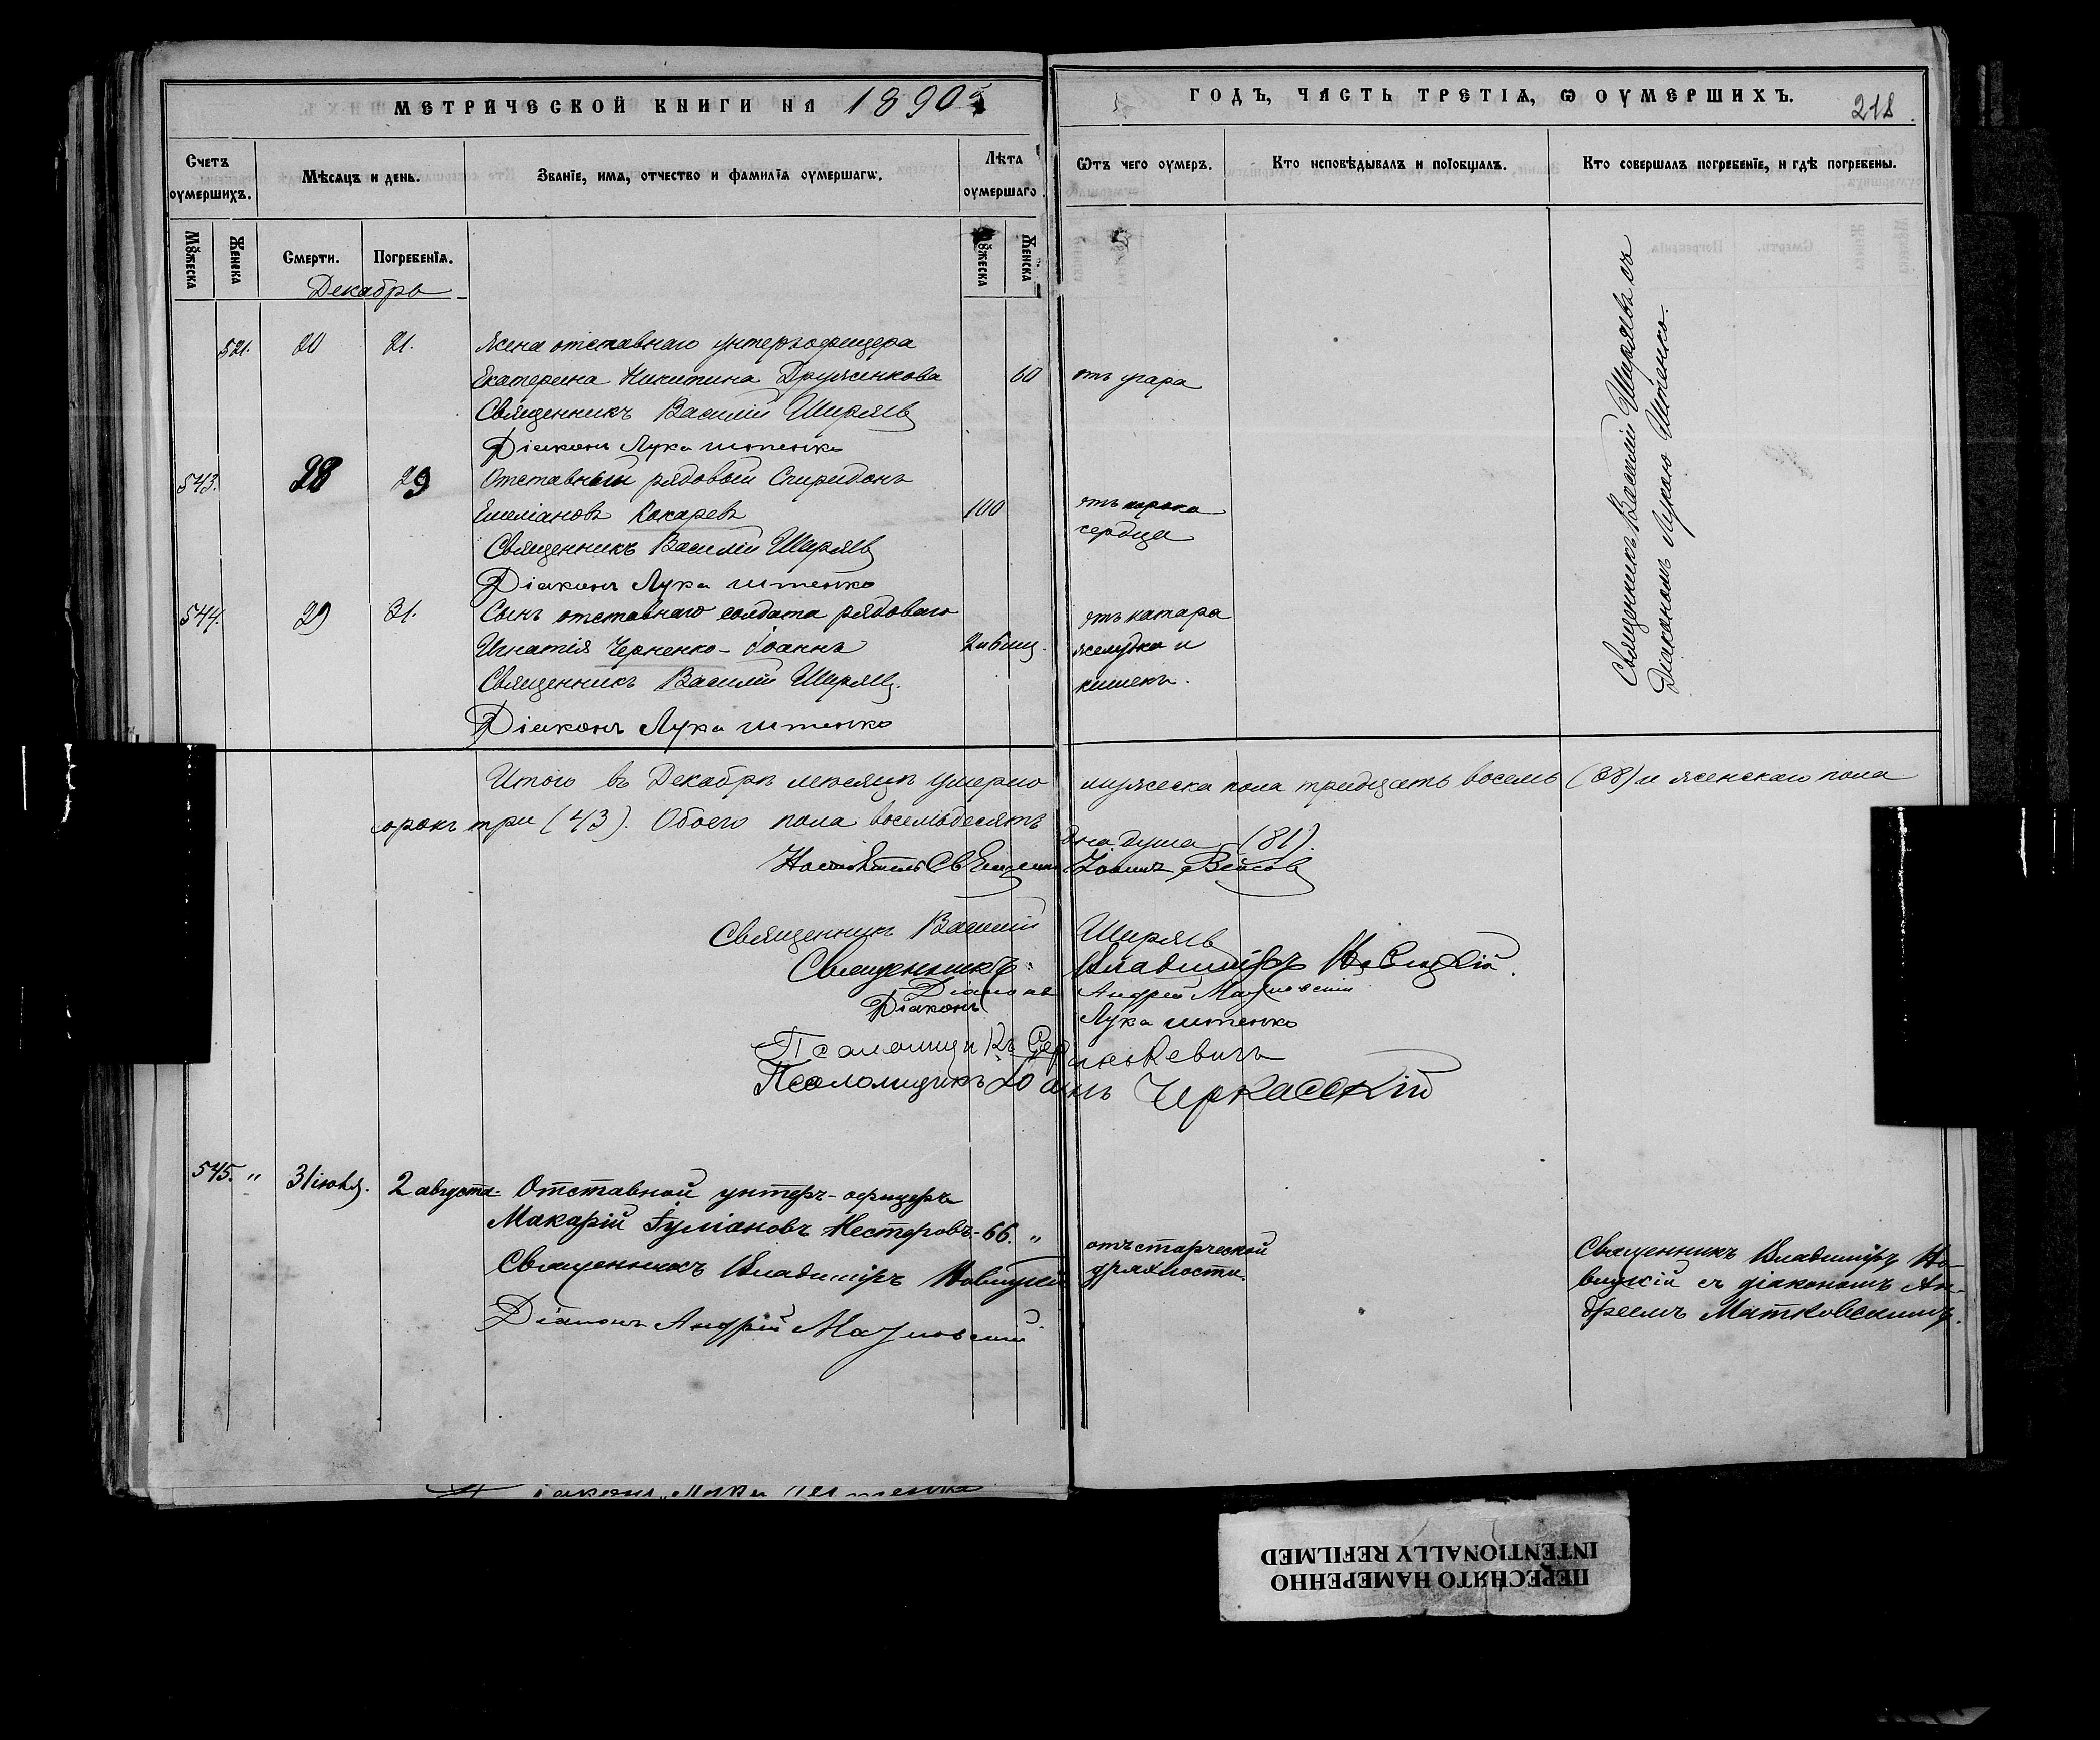 МЕТРИЧЕСКОЙ КНИГИ НА 1890 ГОДЪ, ЧАСТЬ ТРЕТІѦ, Ѡ ОУМЕРШИХЪ.
218
Счетъ оумершихъ.
Мѣсѧцъ и день.
Званїе, имѧ, отчество и фамилїѧ оумершагѡ.
Лѣта оумершаго.
Ѿтъ чего оумеръ.
Кто исповѣдывалъ и поїобщалъ.
Кто совершалъ погребенїе, и гдѣ погребены.
Мꙋжеска
Женска
Смерти.
Погребенїѧ.
Мꙋжеска
Женска
Декабрь
521. 20 21. Жена отставнаго унтеръ офицера
Екатерина Никитина Друженкова 60 отъ угара
Священникъ Василій Ширяевъ
Діаконъ Лука Штенко
543. 28 29 Отставный рядовой Спиридонъ
Емеліановъ Кокаревъ 100 отъ порока
сердца
Священникъ Василій Ширяевъ
Діаконъ Лука Штенко
544. 29 31. Сынъ отставнаго солдата рядоваго отъ катара
Игнатія Черненко - Іоаннъ 2 и 6 мц. желудка и
Священникъ Василій Ширяевъ. кишекъ.
Діаконъ Лука Штенко
Священникъ Василій Ширяевъ съ
Діакономъ Лукою Штенко.
Итого въ Декабрѣ мѣсяцѣ умерло мужеска пола тридцать восемь (38) и женскаго пола
сорокъ три (43). Обоего пола восемьдесятъ одна душа (81).
Настоятель Священникъ Іоаннъ
Священникъ Василій Ширяевъ
Священникъ Владиміръ Новицкій.
Діаконъ Андрей Матковскій
Діаконъ Лука Штенко
Псаломщикъ
Псаломщикъ Іоаннъ Черкасскій
545. " 31 іюля. 2 августа. Отставной унтеръ-офицеръ
Макарій Іуліановъ Нестеровъ - 66. " отъ старческой
Священникъ Владиміръ Новицкій дряхлости.
Діаконъ Андрей Матковскій
Священникъ Владиміръ Но-
вицкій съ діакономъ Ан-
дреемъ Матковскимъ.
Діаконъ Лука Штенко
ПЕРЕСНЯТО НАМЕРЕННО
INTENTIONALLY REFILMED